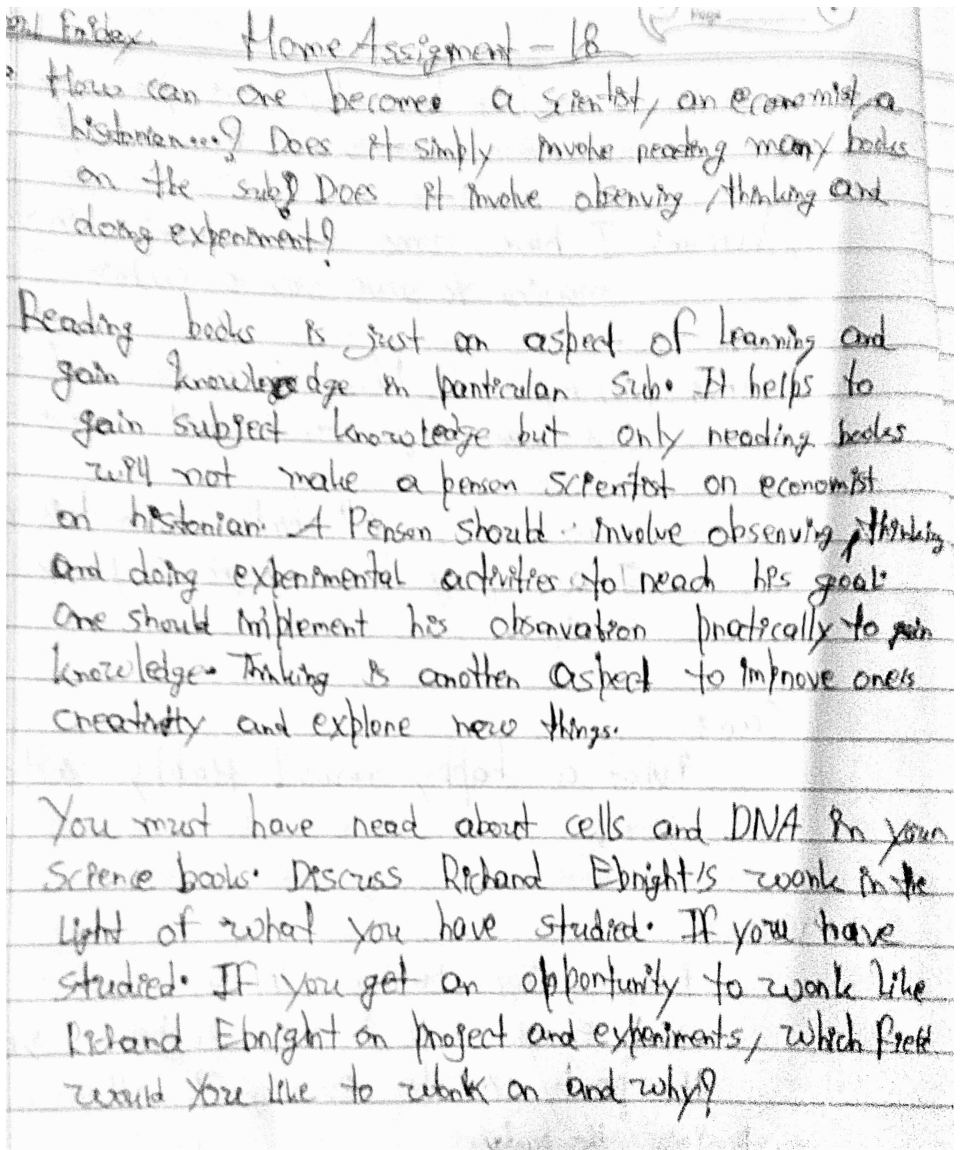 Friday. Home Assigment - 18
How can one becomes a scientist, an economist, a
historian...? Does it simply involve reading many books
on the sub? Does it involve observing, thinking and
doing experiment?
Reading books is just an aspect of learning and
gain knowledge in particular sub. It helps to
gain subject knowledge but only reading books
will not make a person scientist or economist
or historian. A Person should involve observing, thinking
and doing experimental activities to reach his goal.
One should implement his observation practically to gain
knowledge. Thinking is another aspect to improve one's
creativity and explore new things.
You must have read about cells and DNA in your
Science books. Discuss Richard Ebright's work in the
Light of what you have studied. If you have
studied. If you get an opportunity to work like
Richard Ebright on project and experiments, which field
would you like to work on and why?